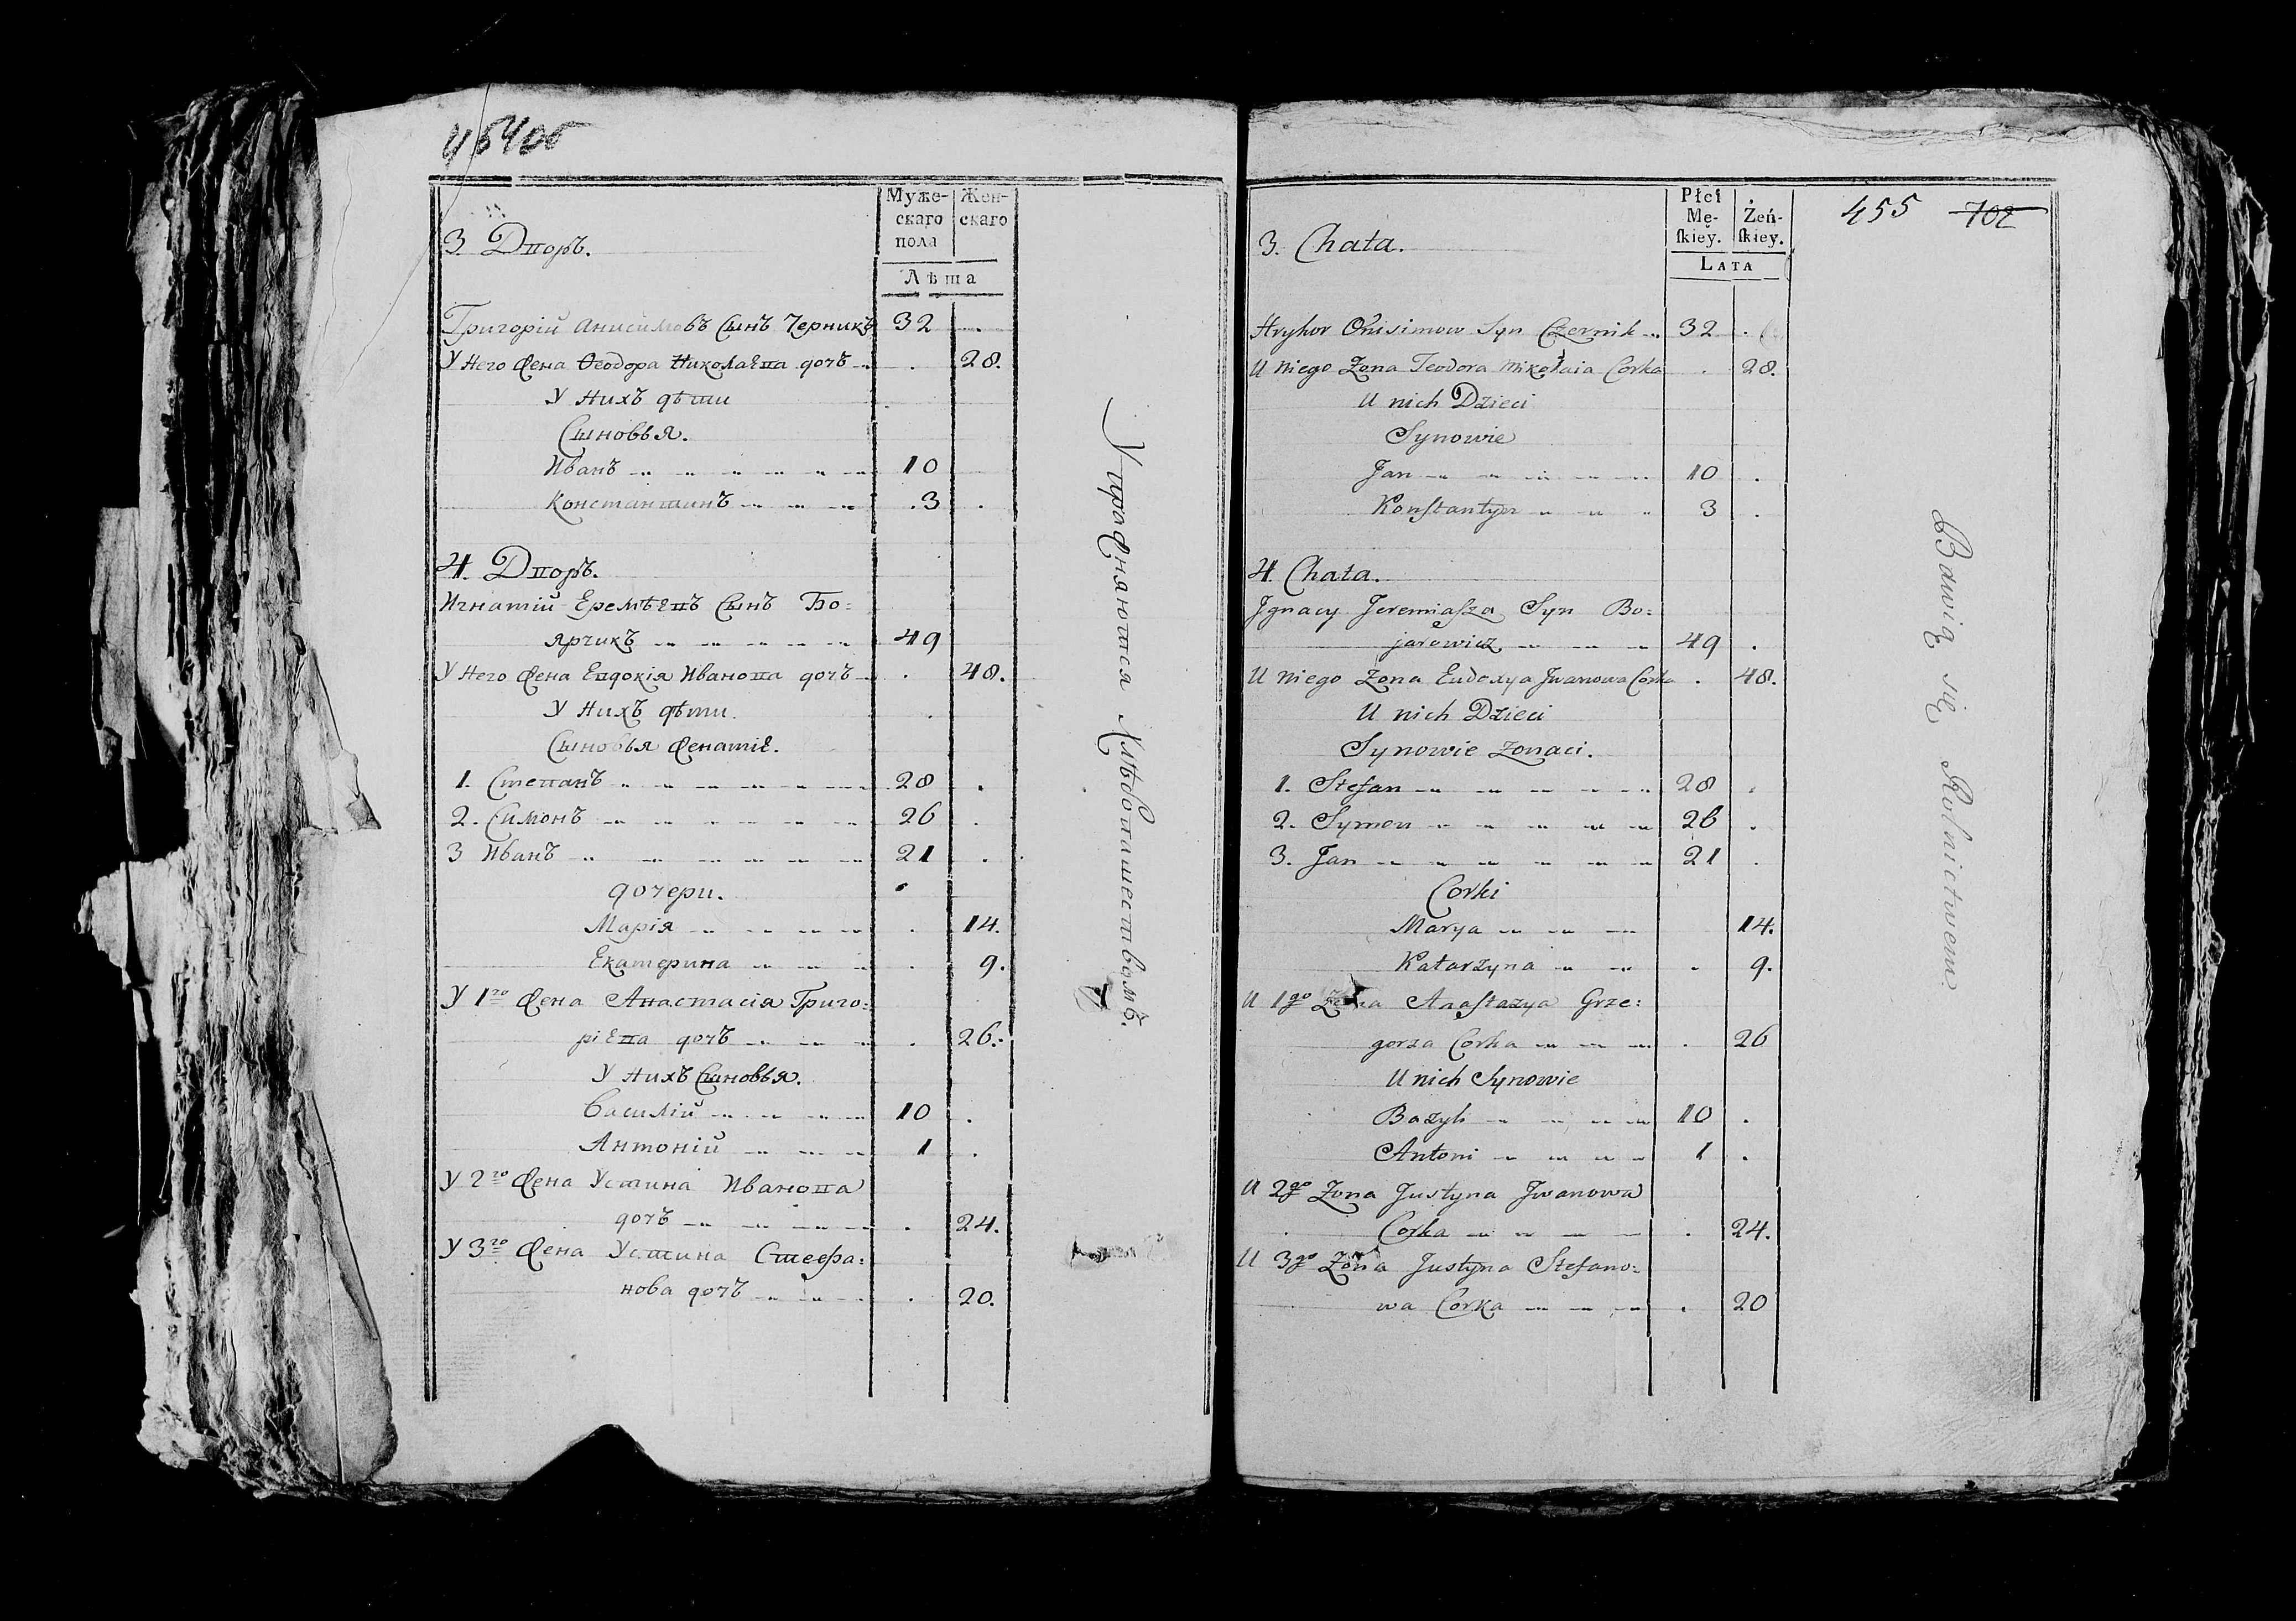 454об
Муже-
скаго
пола
Жен-
скаго
Лѣта
3. Дворъ.
Григорій Анисимовъ Сынъ Черникъ 32 .
У Него Жена Ѳеодора Николаева дочь . 28.
У Нихъ дѣти
Сыновья.
Иванъ 10
Константинъ . 3 .
4. Дворъ.
Игнатій Еремѣевъ Сынъ Бо:
ярчикъ 49
У Него Жена Евдокія Иванова дочь . 48.
У Нихъ дѣти.
Сыновья Женатіе.
1. Степанъ 28 .
2. Симонъ 26 .
3 Иванъ 21 .
дочери.
Марія . 14.
Екатерина . 9.
У 1го Жена Анастасія Григо:
ріева дочь . 26.
У Нихъ Сыновья.
Василій 10 .
Антоній 1 .
У 2го Жена Устина Иванова
дочь . 24.
У 3го Жена Устина Стефа:
нова дочь . 20.
Упражняются Хлѣбопашествомъ.
455 702
Płci
Mę-
ſkiey.
Żeń-
ſkiey.
LATA
3. Chata.
Hryhor Onisimow Syn Czernik 32 .
U Niego Zona Teodora Mikołaia Corka . 28.
U nich Dzieci
Synowie
Jan 10 .
Konſtantyn 3 .
4. Chata.
Jgnacy Jeremiaſza Syn Bo:
jarowicz 49 .
U Niego Zona Eudoxya Jwanowa Corka . 48.
U nich Dzieci
Synowie zonaci.
1. Stefan 28 .
2. Symen 26 .
3. Jan 21 .
Corki
Marya 14.
Katarzyna . 9.
U 1go Zona Anaſtazya Grze:
gorza Corka . 26
U nich Synowie
Bazyli 10 .
Antoni 1 .
U 2go Zona Justyna Jwanowa
Corka . 24.
U 3go Zona Justyna Stefano:
wa Corka . 20
Bawią się Rolnictwem.